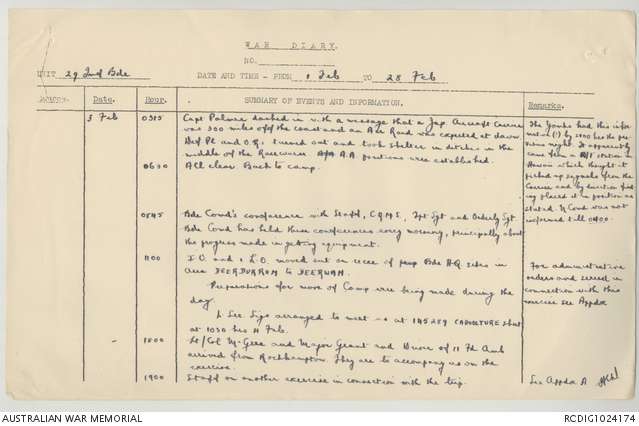 WAR DIARY.
NO.
UNIT 29 Inf Bde DATE AND TIME - FROM 1 Feb TO 28 Feb
Date. Hour. SUMMARY OF EVENTS AND INFORMATION. Remarks.
3 Feb 0315 Capt Palmer dashed in with a message that a Jap Aircraft Carrier
was 300 miles off the coast and an Air Raid was expected at dawn
Def Pl and O.Rs turned out and took shelter in ditches in the
middle of the Racecourse. A.A positions were established.
0630 All clear Back to camp.
The Yanks had this infor-
mation (!) by 2000 hrs the pre-
vious night. It apparently
came from a station in
Hawaii which thought it
picked up signals from the
Carrier and by direction find-
ing placed it in position as
stated. N Comd was not
informed till 0400.
0845 Bde Comd's conference with Staff, C.Q.M.S, Sgt and Orderly Sgt
Bde Comd has held these conferences every morning, principally about
the progress made in getting equipment.
1100 I.O. and 1 L.O. moved out on recce of prop Bde H.Q. sites in
area BEERBURRUM to BEERWAH.
Preparations for move of Camp were being made during the
day.
L Sec Sigs arranged to meet us at 145289 CABOOLTURE sheet
at 1030 hrs 4 Feb.
For administrative
orders and served in
connection with this
exercise see Appdx
1800 Lt/Col McGee and Major Grant and of 11 Fd Amb
arrived from Rockhampton. They are to accompany us on the
exercise.
1900 Staff on another exercise in connection with the trip.
See Appdx A
AUSTRALIAN WAR MEMORIAL
RCDIG1024174